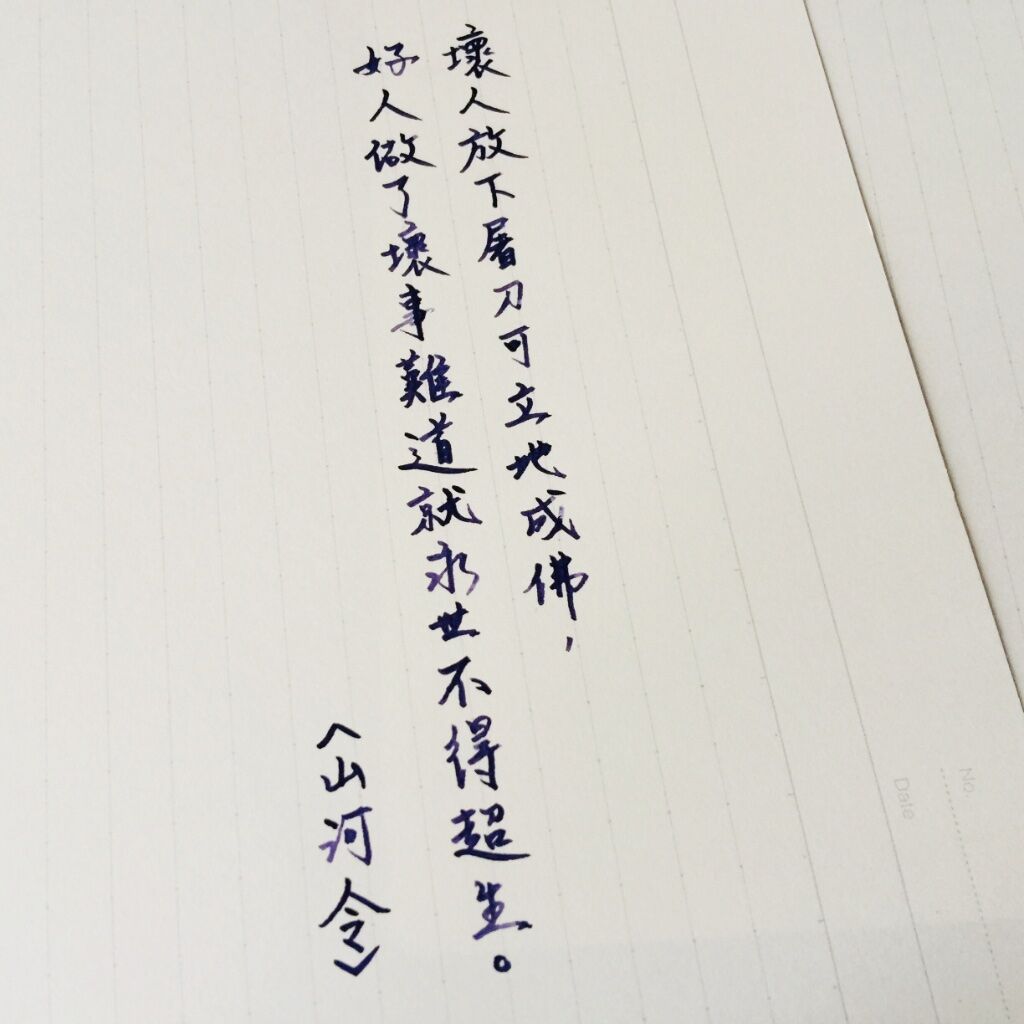 壞人放下屠刀可立地成佛，
好人做了壞事難道就永世不得超生。
《山河令》
No.
Date